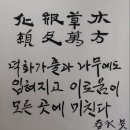 化被草木
賴及萬方
덕화가 풀과 나무에도
입혀지고 이로움이
모든 곳에 미친다